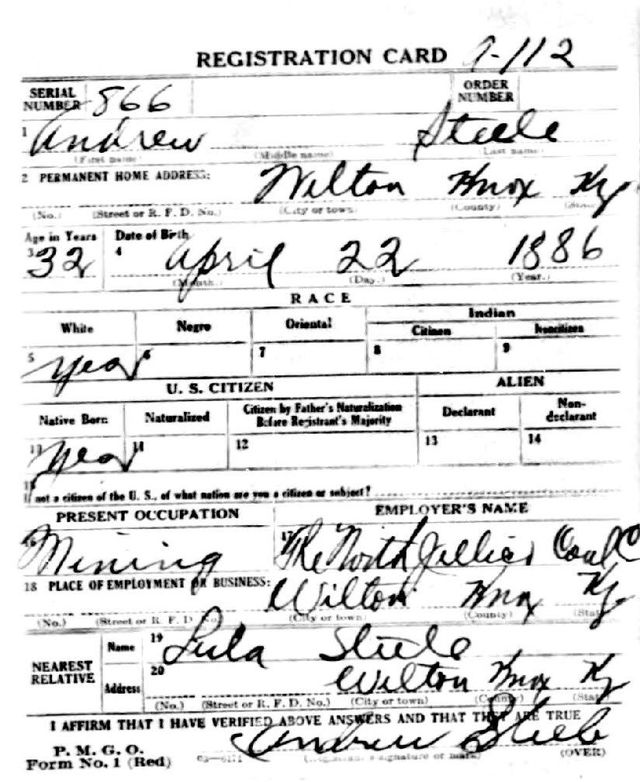 REGISTRATION CARD 9-112
SERIAL NUMBER 866 ORDER NUMBER
1 Andrew Steele
(First name) (Middle name) Last name
2 PERMANENT HOME ADDRESS: Wilton Knox Ky
(No.) (Street or R. F. D. No.) (City or town) (County) (State)
Age in Years Date of Birth
3 32 4 April 22 1886
(Month.) (Day.) (Year.)
RACE
White Negro Oriental Indian
Citizen Noncitizen
5 Yes 6 7 8 9
U. S. CITIZEN ALIEN
Native Born Naturalized Citizen by Father's Naturalization Before Registrant's Majority Declarant Non-declarant
10 Yes 11 12 13 14
15
If not a citizen of the U. S., of what nation are you a citizen or subject?
PRESENT OCCUPATION EMPLOYER'S NAME
16 Mining 17 The North Jellico Coal C
18 PLACE OF EMPLOYMENT OR BUSINESS: Wilton Knox Ky
(No.) (Street or R. F. D. No.) (City or town) (County) (State)
NEAREST RELATIVE Name 19 Lula Steele
Address 20 Wilton Knox Ky
(No.) (Street or R. F. D. No.) (City or town) (County) (State)
I AFFIRM THAT I HAVE VERIFIED ABOVE ANSWERS AND THAT THEY ARE TRUE
P. M. G. O.
Form No. 1 (Red) 03—6171 Andrew Steele
(Registrant's signature or mark) (OVER)